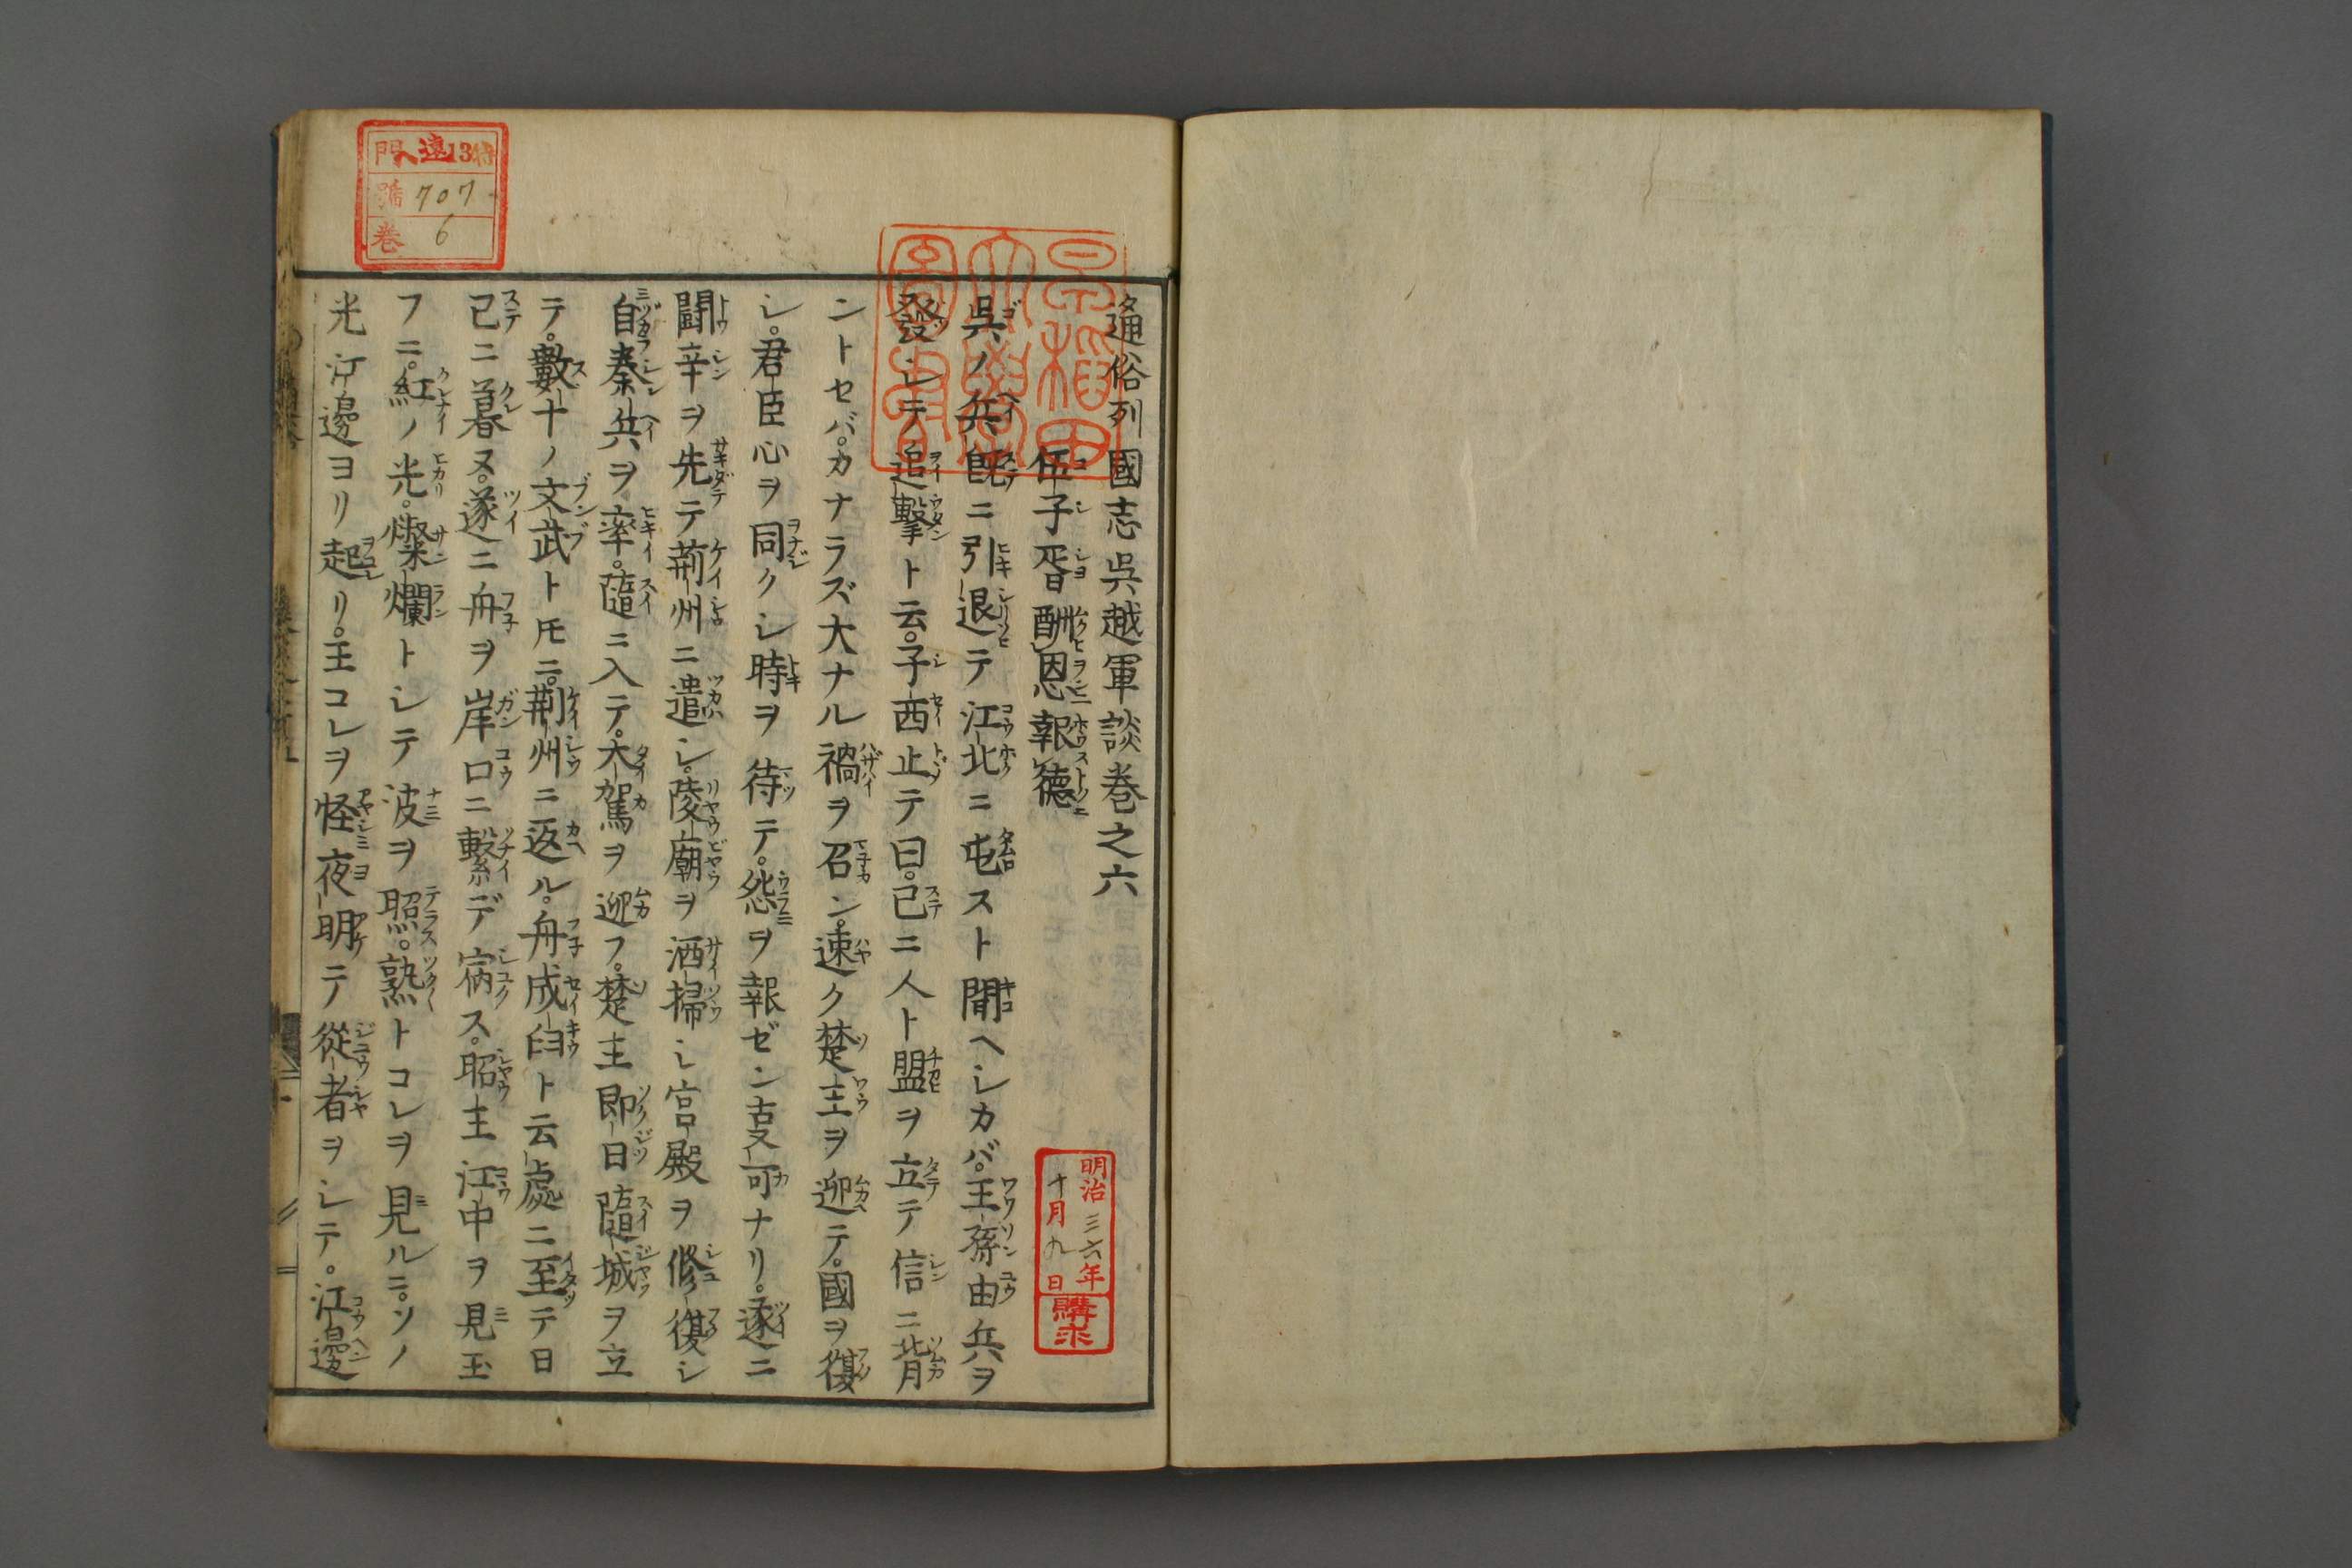 通俗列國志呉越軍談巻之六
伍子胥酬恩報德
呉ノ兵既ニ引退テ江北ニ屯スト聞ヘシカバ。王孫由兵ヲ
發シテ追擊ト云。子西止テ曰。已ニ人ト盟ヲ立テ信ニ背
ントセバ。カナラズ大ナル禍ヲ召ン。速ク楚主ヲ迎テ。國ヲ復
シ。君臣心ヲ同クシ時ヲ待テ。怨ヲ報ゼン支可ナリ。遂ニ
鬪辛ヲ先テ荊州ニ遣シ。陵廟ヲ洒掃シ宮殿ヲ修復シ
自秦兵ヲ率。隨ニ入テ。大駕ヲ迎フ。楚主即日隨城ヲ立
テ。數十ノ文武トモニ。荊州ニ返ル。舟成臼ト云處ニ至テ日
已ニ暮ヌ。遂ニ舟ヲ岸口ニ繫デ宿ス。昭主江中ヲ見玉
フニ。紅ノ光。燦爛トシテ波ヲ照。熟トコレヲ見ルニ。ソノ
光江邊ヨリ起リ。王コレヲ怪夜明テ從者ヲシテ。江邊
門 遠13特
號 707
卷 6
明治三六年
十月九日
購求